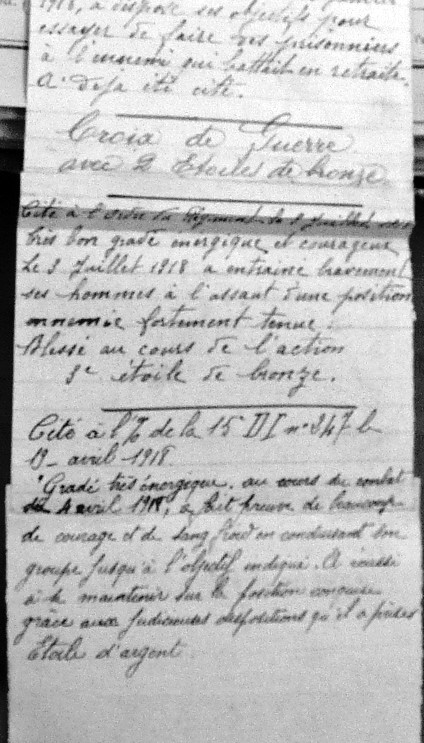 1918, a dépassé ses objectifs pour
essayer de faire des prisonniers
à l'ennemi qui battait en retraite.
A déja été cité.
Croix de Guerre
avec 2 Etoiles de bronze.
Cité à l'ordre du Régiment le Juillet
très bon gradé énergique et courageux
Le 3 Juillet 1918 a entrainé bravement
ses hommes à l'assaut d'une position
ennemie fortement tenue.
Blessé au cours de l'action
3e étoile de bronze.
Cité à l' de la 15 DI n° 347 le
19 - avril 1918.
"Gradé très énergique. au cours du combat
du 4 avril 1918, a fait preuve de beaucoup
de courage et de sang froid en conduisant son
groupe jusqu'à l'objectif indiqué. A réussi
à se maintenir sur la position conquise
grâce aux judicieuses dispositions qu'il a prises
Etoile d'argent